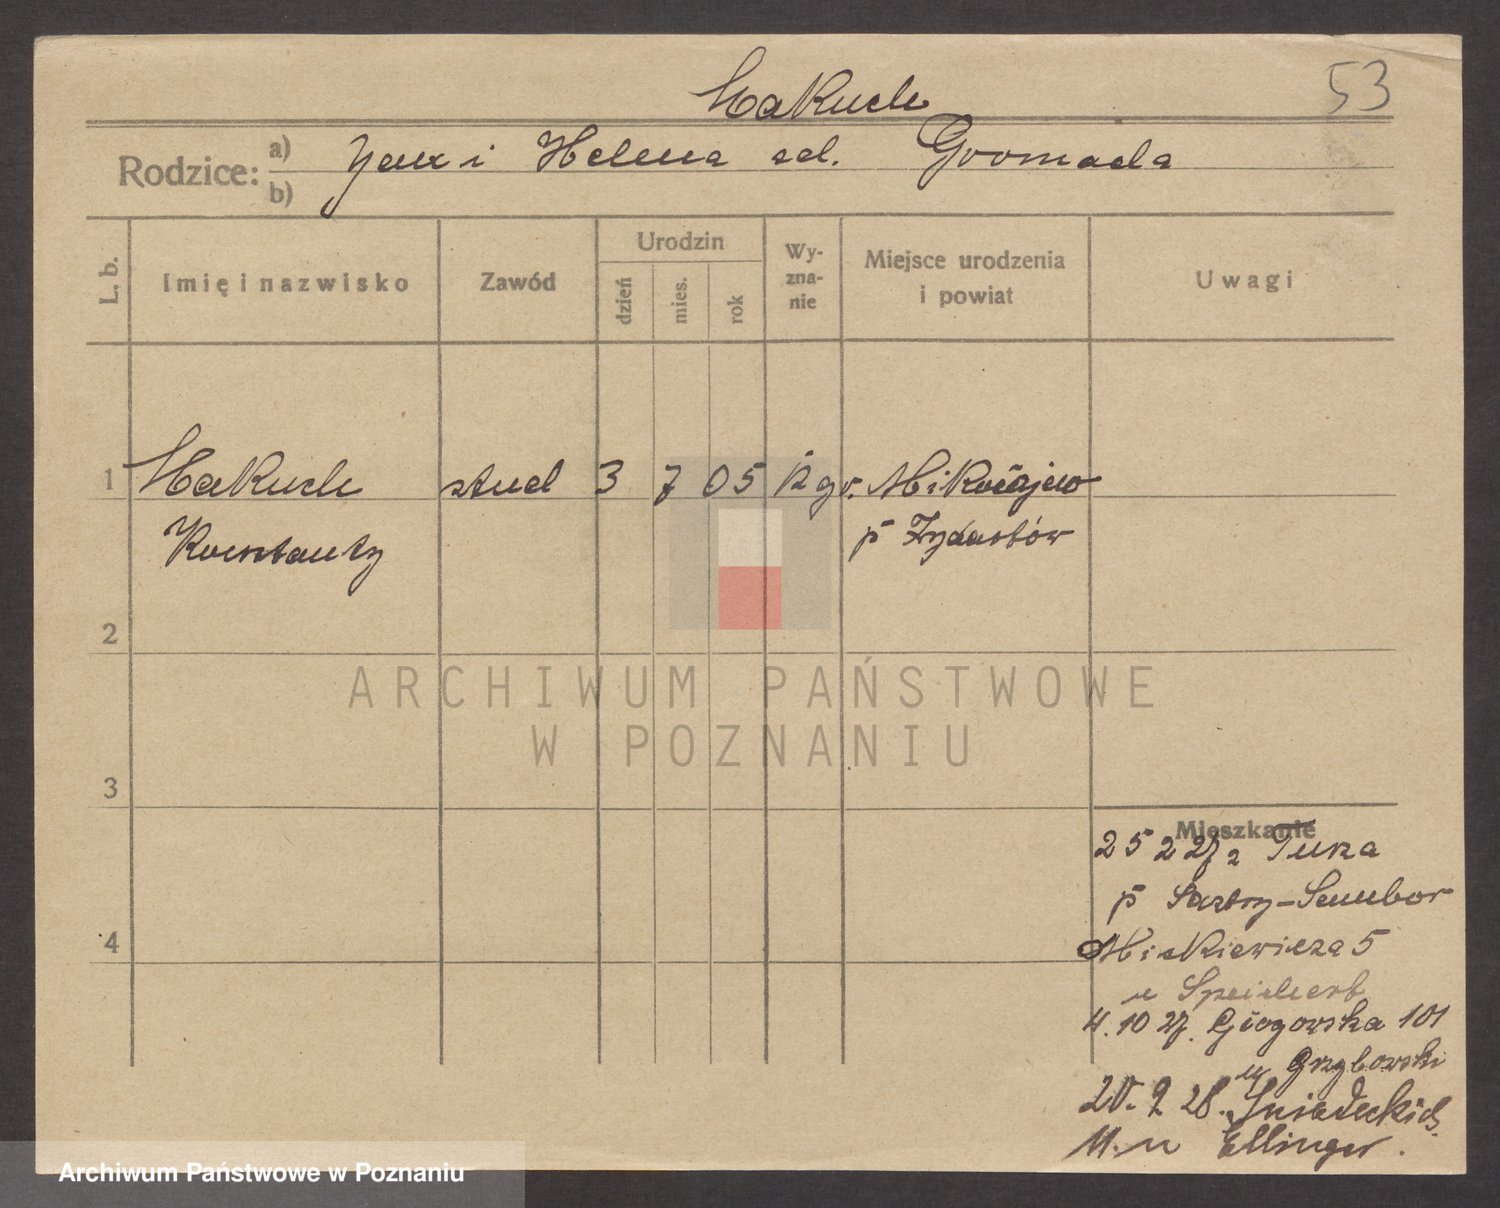 53
Makuch
Rodzice: a) Jan i Helena ad. Gromada
b)
L. b.
Imię i nazwisko
Zawód
Urodzin
dzień
mies.
rok
Wy-
zna-
nie
Miejsce urodzenia
i powiat
Uwagi
1 Makuch stud 3 7 05 gr. Mikołajew
Konstanty p Żydaczów
2
3
4
ARCHIWUM PAŃSTWOWE
W POZNANIU
Mieszkanie
25 2 27 z Turka
p Stary-Sambor
Mickiewicza 5
u
4. 10 27. Głogowska 101
u Grzybowski
20. 9 28. Śniadeckich
11. u Ellinger.
Archiwum Państwowe w Poznaniu